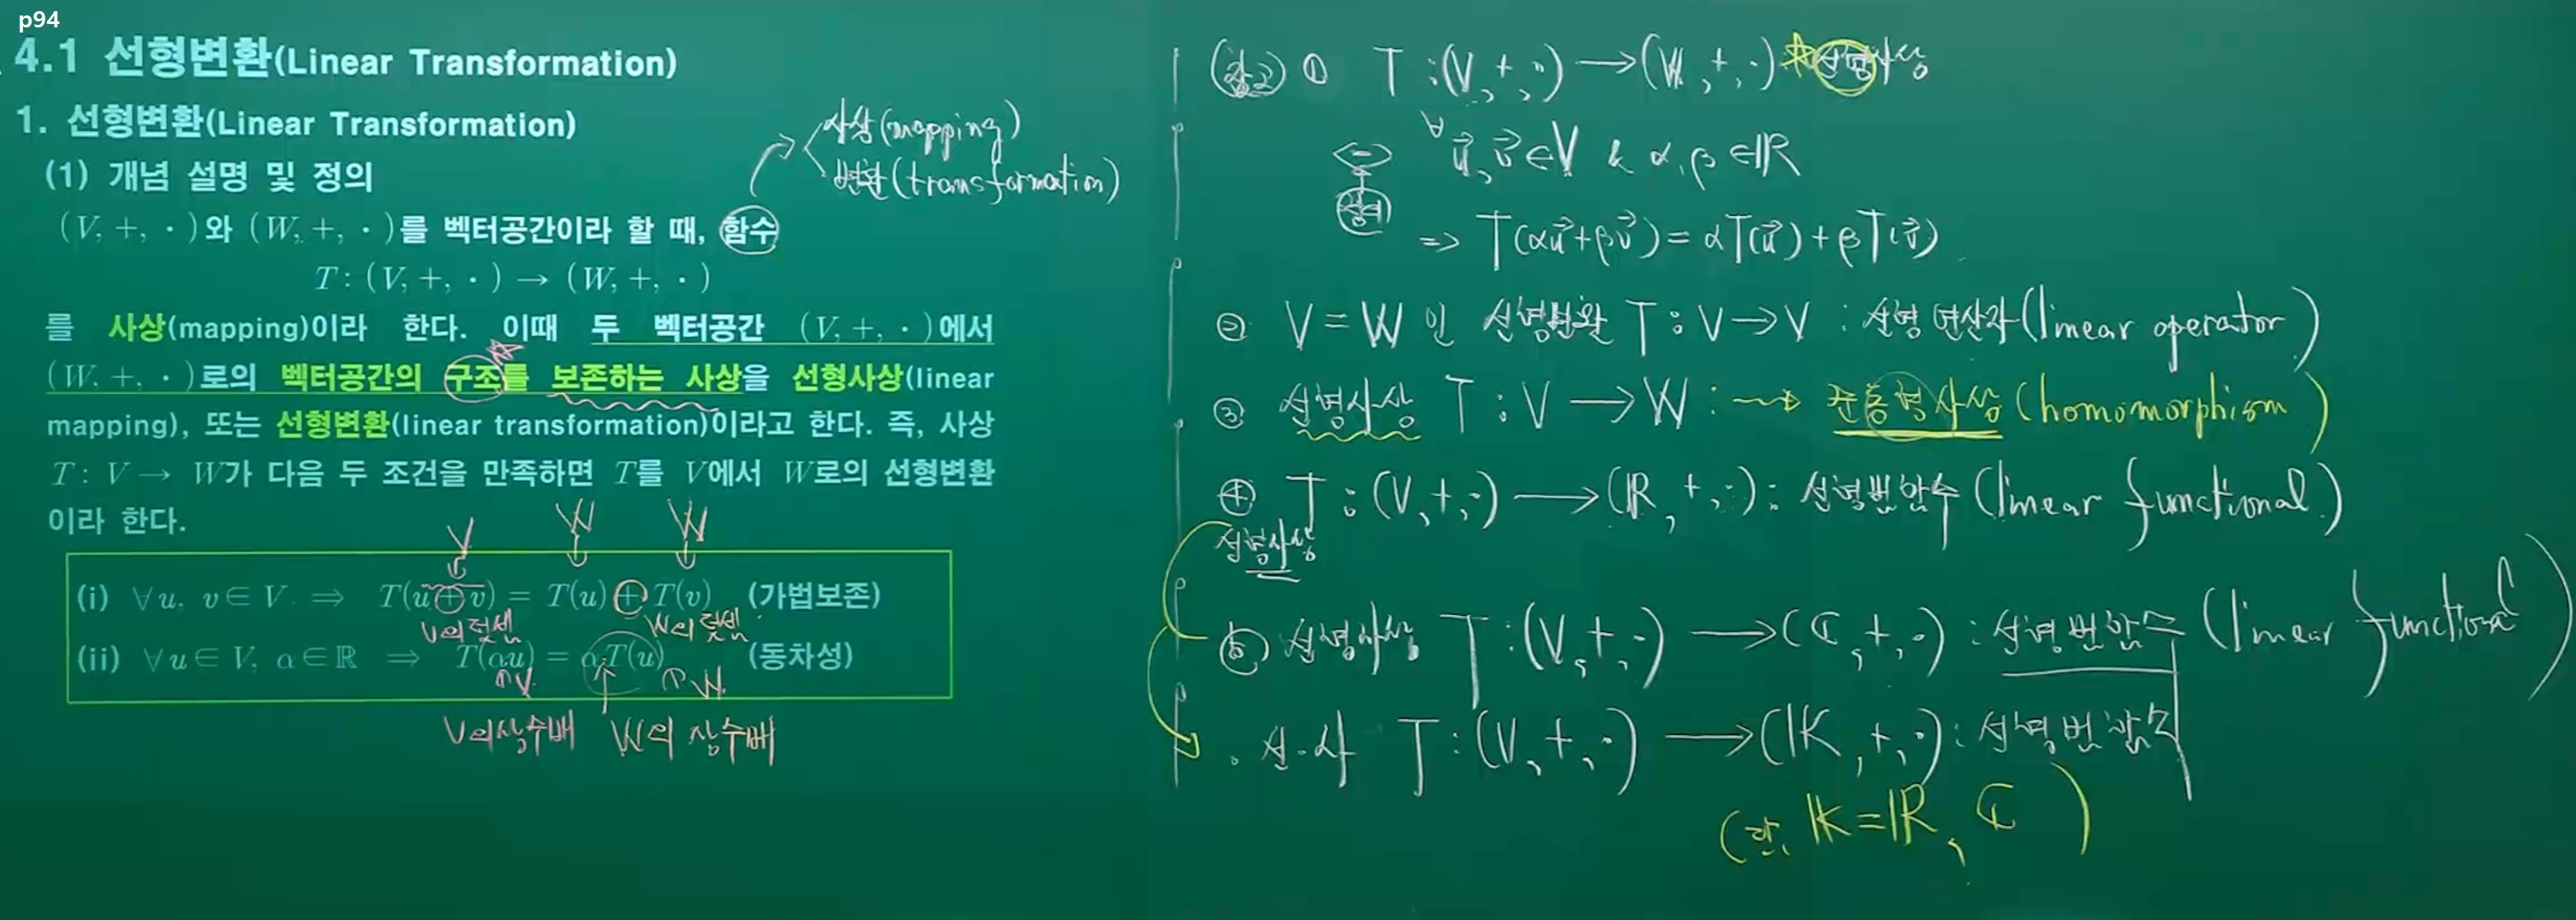 p94
4.1 선형변환(Linear Transformation)
1. 선형변환(Linear Transformation)
(1) 개념 설명 및 정의
사상(mapping)
변환(transformation)
(V, +, ·)와 (W, +, ·)를 벡터공간이라 할 때, 함수
T : (V, +, ·) → (W, +, ·)
를 사상(mapping)이라 한다. 이때 두 벡터공간 (V, +, ·)에서
(W, +, ·)로의 벡터공간의 구조를 보존하는 사상을 선형사상(linear
mapping), 또는 선형변환(linear transformation)이라고 한다. 즉, 사상
T : V → W가 다음 두 조건을 만족하면 T를 V에서 W로의 선형변환
이라 한다.
V W W
(i) ∀u, v∈V ⇒ T(u+v) = T(u)+T(v) (가법보존)
V의 덧셈 W의 덧셈
(ii) ∀u∈V, α∈ℝ ⇒ T(αu) = αT(u) (동차성)
V W
V의 상수배 W의 상수배
(참고) ① T : (V, +, ·) → (W, +, ·) 선형사상
⇔ ∀u⃗, v⃗ ∈ V & α, β ∈ ℝ
정의
⇒ T(αu⃗+βv⃗) = αT(u⃗) + βT(v⃗)
② V = W 인 선형변환 T : V → V : 선형 연산자(linear operator)
③ 선형사상 T : V → W : 준동형사상(homomorphism)
④ T : (V, +, ·) → (ℝ, +, ·) : 선형범함수(linear functional)
선형사상
⑤ 선형사상 T : (V, +, ·) → (ℂ, +, ·) : 선형범함수(linear functional)
· 선·사 T : (V, +, ·) → (𝕂, +, ·) : 선형범함수
(단, 𝕂=ℝ, ℂ)